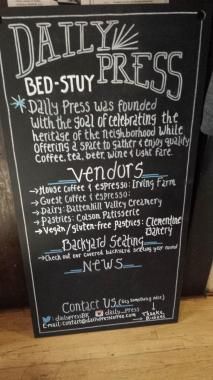 DAILY
PRESS
BED-STUY
Daily Press was founded
with the goal of celebrating the
heritage of the neighborhood while
offering a space to gather & enjoy quality
coffee, tea, beer, wine & light fare.
vendors
→ House Coffee & espresso: Irving Farm
→ Guest Coffee & espresso:
→ Dairy: Battenkill Valley Creamery
→ Pastries: Colson Patisserie
→ Vegan/gluten-free Pastries: Clementine
Bakery
Backyard Seating
→ Check out our covered backyard seating year round
NEWS
Contact US (say something nice)
: dailypressBK daily_press
E-mail: contact@dailypresscoffee.com
Thanks,